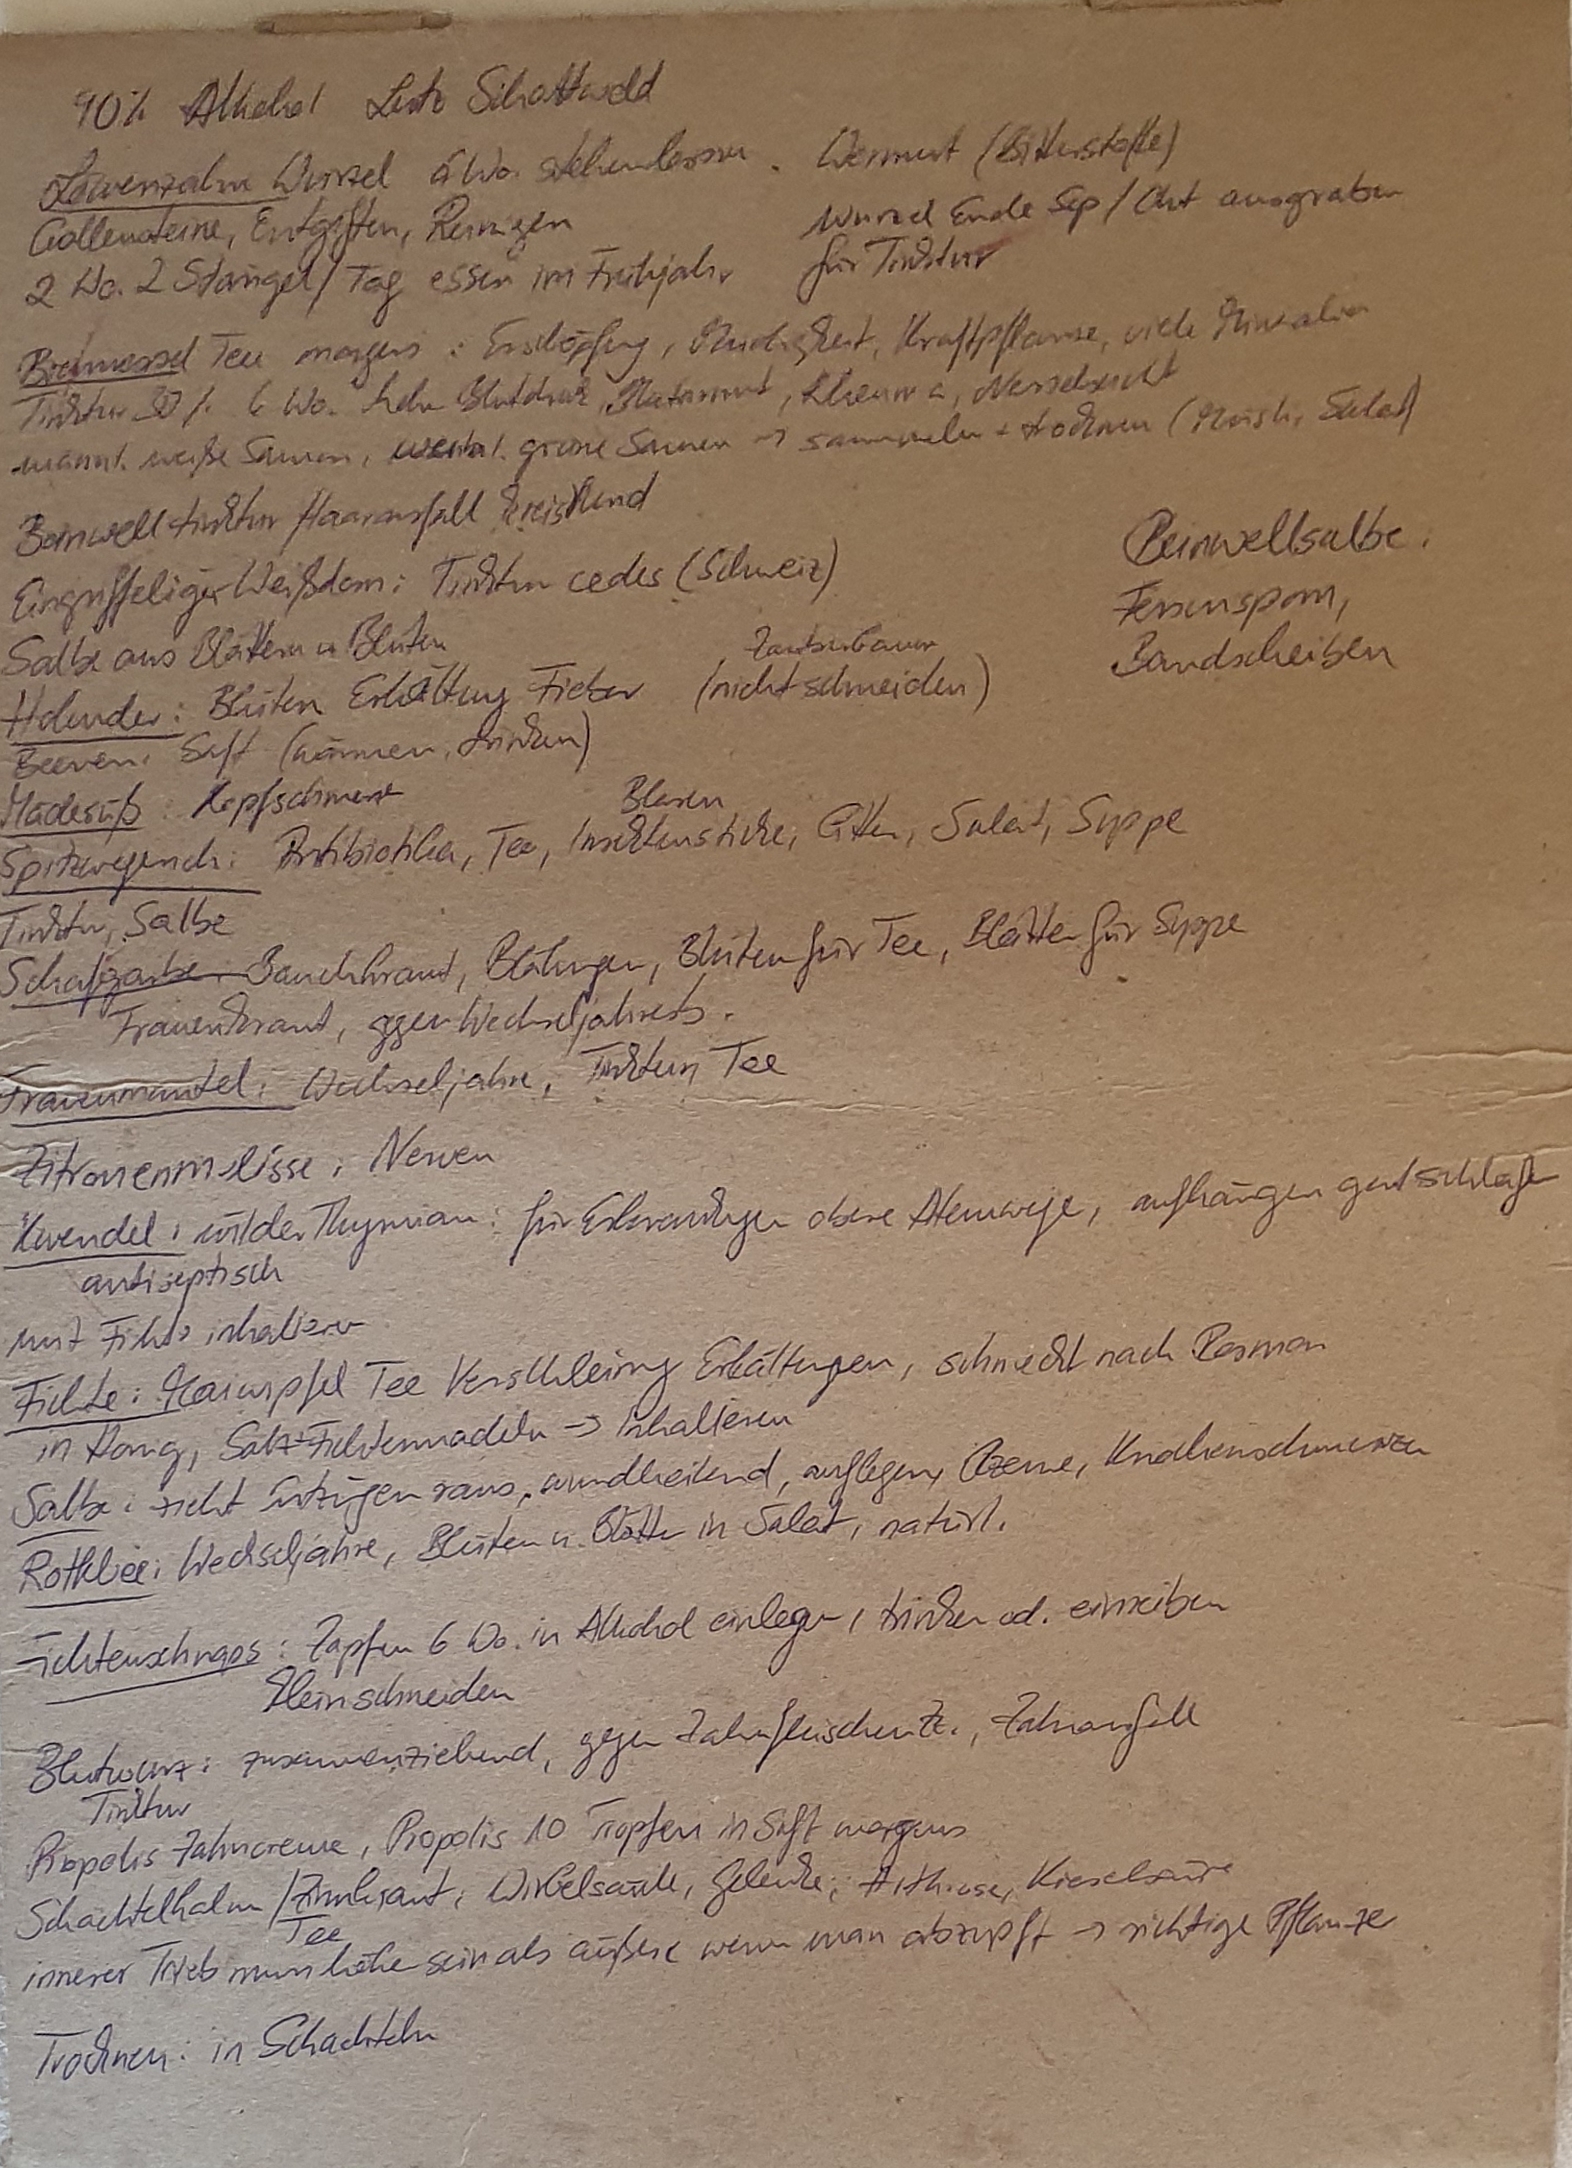 90% Alkohol Lutz Schattwald
Löwenzahn Wurzel 6 Wo. stehenlassen. Wermut (Bitterstoffe)
Gallensteine, Entgiften, Reinigen
Wurzel Ende Sep/Okt ausgraben
2 Wo. 2 Stängel/Tag essen im Frühjahr
für Tinktur
Brennnessel Tee morgens: Erschöpfung, Müdigkeit, Kraftpflanze, viele Mineralien
Tinktur 6 Wo. hoher Blutdruck, Blutarmut, Rheuma, Nesselsucht
männl. weiße Samen, weibl. grüne Samen → sammeln + trocknen (Müsli, Salat)
Beinwelltinktur Haarausfall kreisrund
Beinwellsalbe:
Fersensporn,
Bandscheiben
Eingriffeliger Weißdorn: Tinktur ceres (Schweiz)
Salbe aus Blättern u Blüten
Zauberbaum
Holunder: Blüten Erkältung Fieber (nicht schneiden)
Beeren: Saft (wärmen, trinken)
Mädesüß: Kopfschmerz
Blasen
Spitzwegerich: Antibiotika, Tee, Insektenstiche, Salat, Suppe
Tinktur, Salbe
Schafgarbe: Bauchkraut, Blähungen, Blüten für Tee, Blätter für Suppe
Frauenkraut, gegen Wechseljahresb.
Frauenmantel: Wechseljahre, Tinktur, Tee
Zitronenmelisse: Nerven
Quendel: wilder Thymian: für Erkrankungen obere Atemwege, aufhängen gut schlafen
antiseptisch
mit Fichte inhalieren
Fichte: Maiwipfel Tee Verschleimung Erkältungen, schmeckt nach Rosmarin
in Honig, Salz+Fichtennadeln → Inhalieren
Salbe: zieht Entzügen raus, wundheilend, auflegen, Ekzeme, Knochenschmerzen
Rotklee: Wechseljahre, Blüten u. Blätter in Salat, natürl.
Fichtenschnaps: Zapfen 6 Wo. in Alkohol einlegen, trinken od. einreiben
kleinschneiden
Blutwurz: zusammenziehend, gegen Zahnfleischentz., Zahnausfall
Tinktur
Propolis Zahncreme, Propolis 10 Tropfen in Saft morgens
Schachtelhalm/Zinnkraut: Wirbelsäule, Gelenke, Arthrose, Kieselsäure
Tee
innerer Trieb muss höher sein als äußere wenn man abzupft → richtige Pflanze
Trocknen: in Schachteln